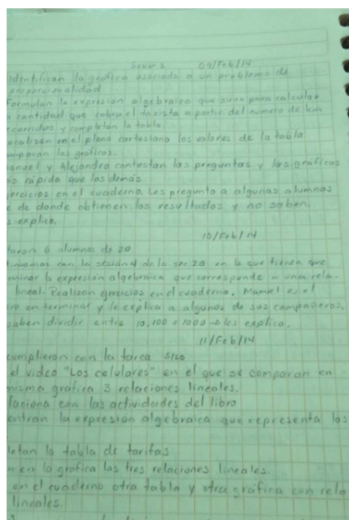 Sesión 2 09/Feb/14
Identifican la gráfica asociada a un problema de
proporcionalidad
Formulan la expresión algebraica que sirve para calcular
cantidad que cobra el taxista a partir del número de km
recorridos y completan la tabla.
en el plano cartesiano los valores de la tabla
comparan las gráficas.
Manuel y Alejandra contestan las preguntas y las gráficas
más rápido que los demás
ejercicios en el cuaderno. Les pregunto a algunas alumnas
de donde obtienen los resultados y no saben.
explico.
10/Feb/14
6 alumnos de 20
con la sesión 1 de la sec 20 en la que tienen que
la expresión algebraica que corresponde a una rela-
lineal. Realizan en el cuaderno. Manuel es el
en terminar y le explica a algunos de sus compañeros.
saben dividir entre 10, 100 o 1000 se los explico.
11/Feb/14
cumplieron con la tarea 5/20
el video "Los celulares" en el que se comparan en
misma gráfica 3 relaciones lineales.
con las actividades del libro
la expresión algebraica que representa las
la tabla de tarifas
en la gráfica las tres relaciones lineales.
en el cuaderno otra tabla y otra gráfica con rela
lineales.